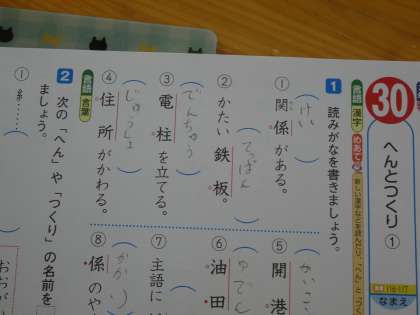 30
へんとつくり①
なまえ
言語 漢字 めあて
1 読みがなを書きましょう。
① 関係がある。
けい
② かたい鉄板。
てっぱん
③ 電柱を立てる。
でんちゅう
④ 住所がかわる。
じゅうしょ
⑤ 開港
かいこ
⑥ 油田
ゆでん
⑦ 主語に
⑧ 係のや
かかり
言語 言葉
2 次の「へん」や「つくり」の名前を
ましょう。
① 糸……